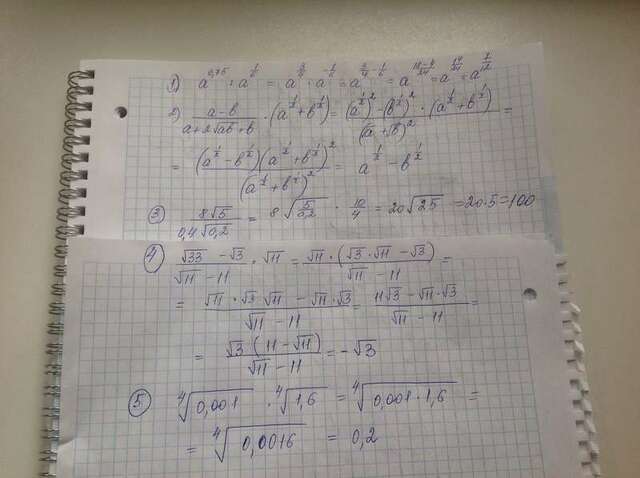 1) a^0,75 : a^(1/6) = a^(3/4) · a^(-1/6) = a^(3/4 - 1/6) = a^((18-4)/24) = a^(14/24) = a^(7/12)
2) (a-b)/(a+2√ab+b) · (a^(1/2) + b^(1/2)) = ((a^(1/2))^2 - (b^(1/2))^2 · (a^(1/2) + b^(1/2)))/(√a + √b)^2 =
= ((a^(1/2) - b^(1/2))(a^(1/2) + b^(1/2))^2)/(a^(1/2) + b^(1/2))^2 = a^(1/2) - b^(1/2)
3) 8√5/(0,4√0,2) = 8√(5/0,2) · 10/4 = 20√25 = 20·5 = 100
4) (√33 - √3)/(√11 - 11) · √11 = √11 · (√3 · √11 - √3)/(√11 - 11) =
= (√11 · √3 √11 - √11 · √3)/(√11 - 11) = (11√3 - √11 · √3)/(√11 - 11) =
= √3 (11 - √11)/(√11 - 11) = -√3
5) ⁴√0,001 · ⁴√1,6 = ⁴√0,001 · 1,6 =
= ⁴√0,0016 = 0,2